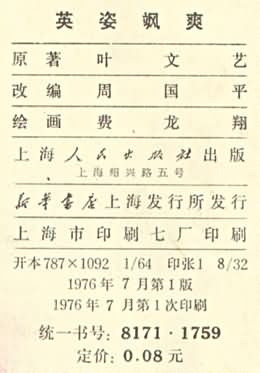 英姿飒爽
原著 叶文艺
改编 周国平
绘画 费龙翔
上海人民出版社出版
上海绍兴路五号
新华书店上海发行所发行
上海市印刷七厂印刷
开本787×1092 1/64 印张1 8/32
1976年7月第1版
1976年7月第1次印刷
统一书号：8171·1759
定价：0.08元